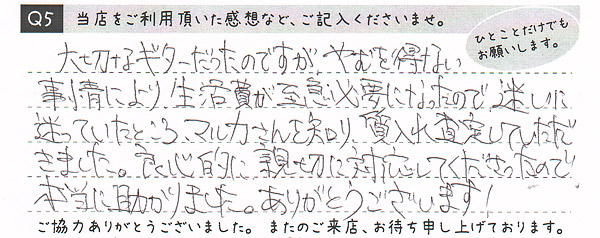 Q5 当店をご利用頂いた感想など、ご記入くださいませ。
ひとことだけでも
お願いします。
大切なギターだったのですが やむを得ない
事情により生活費が至急必要になったので、迷いに
迷っていたところ、マルカさんを知り、質入れ査定していただ
きました。良心的に、親切に対応してくださったので
本当に助かりました。ありがとうございます!
ご協力ありがとうございました。 またのご来店、お待ち申し上げております。